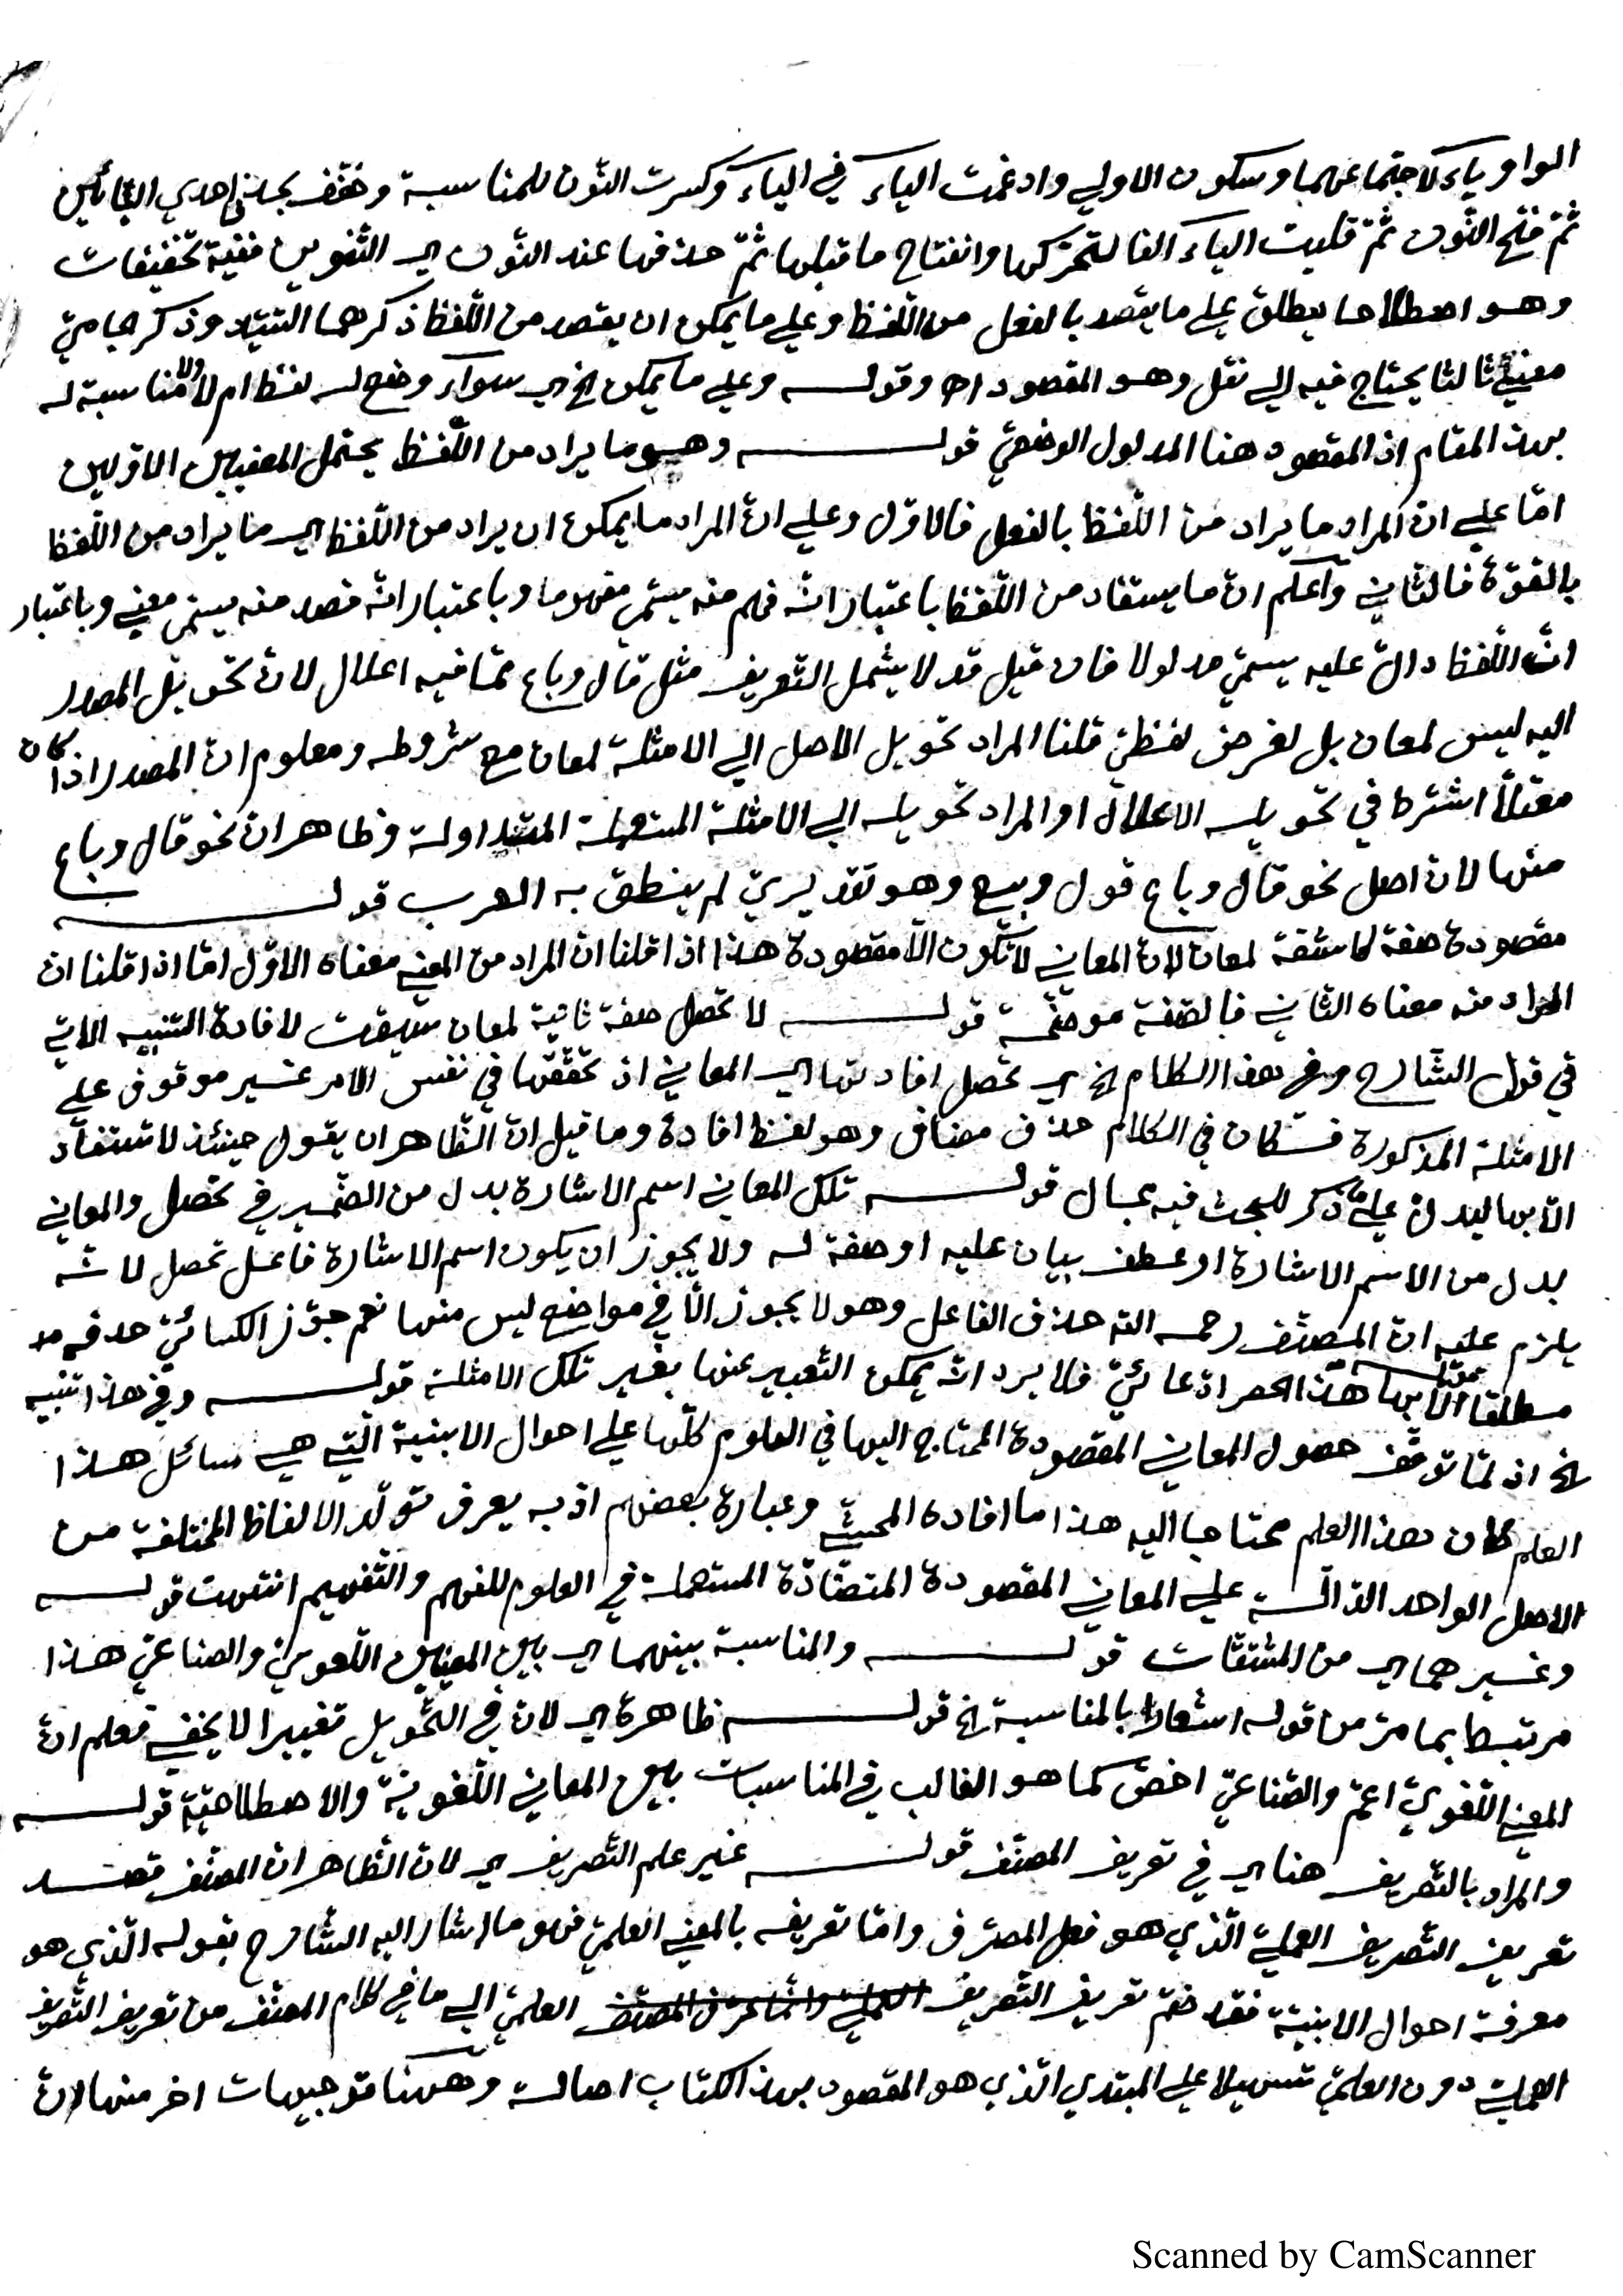 الواو ياء لاجتماعهما وسكون الاولي وادغمت الياء في الياء وكسرت النون للمناسبة وخفف بحذف احدي اليائين
ثم فتح النون ثم قلبت الياء الفا لتحركها وانفتاح ما قبلها ثم حذفها عند النون اي التنوين ففيه تخفيفات
وهو اصطلاحا يطلق علي ما يقصد بالفعل من اللفظ وعلي ما يمكن ان يقصد من اللفظ ذكرهما السيد وذكر جامي
معني ثالثا يحتاج فيه الي نقل وهو المقصود اه وقوله وعلي ما يمكن الخ اي سواء وضع له لفظ ام لا ولا مناسبة له
بهذا المقام اذ المقصود هنا المدلول الوضعي قوله وهو ما يراد من اللفظ يحتمل المعنيين الاولين
اما علي ان المراد ما يراد من اللفظ بالفعل فالاول وعلي ان المراد ما يمكن ان يراد من اللفظ اي ما يراد من اللفظ
بالقوة فالثاني واعلم ان ما يستفاد من اللفظ باعتبار انه فهم منه يسمي مفهوما وباعتبار انه قصد منه يسمي معني وباعتبار
ان اللفظ دال عليه يسمي مدلولا فان قيل قد لا يشمل التعريف مثل قال وباع مما فيه اعلال لان تحويل المصدر
اليه ليس لمعان بل لغرض لفظي قلنا المراد تحويل الاصل الي الامثلة لمعان مع شروطه ومعلوم ان المصدر اذا كان
معتلا اشترط في تحويله الاعلال او المراد تحويله الي الامثلة المستعملة المتداولة وظاهر ان نحو قال وباع
منها لان اصل نحو قال وباع قول وبيع وهو تقديري لم ينطق به العرب قوله
مقصودة صفة كاشفة لمعان لان المعاني لا تكون الا مقصودة هذا اذا قلنا ان المراد من المعني معناه الاول اما اذا قلنا ان
المراد منه معناه الثاني فالصفة موضحة قوله لا تحصل صفة ثانية لمعان سيقت لافادة التنبيه الاتي
في قول الشارح وفي هذا الكلام الخ اي تحصل افادتها اي المعاني اذ تحققها في نفس الامر غير موقوف علي
الامثلة المذكورة فكان في الكلام حذف مضاف وهو لفظ افادة وما قيل ان الظاهر ان يقول حينئذ لا تستفاد
الا بها ليدل علي ما ذكر للبحث فيه مجال قوله تلك المعاني اسم الاشارة بدل من الضمير في تحصل والمعاني
بدل من الاسم الاشارة او عطف بيان عليه او صفة له ولا يجوز ان يكون اسم الاشارة فاعل تحصل لانه
يلزم عليه ان المصنف رحمه الله حذف الفاعل وهو لا يجوز الا في مواضع ليس منها نعم جوز الكسائي حذفه
مطلقا قوله الا بها هذا الحصر ادعائي فلا يرد انه يمكن التعبير عنها بغير تلك الامثلة قوله وفي هذا تنبيه
الخ اذ لما توقف حصول المعاني المقصودة المحتاج اليها في العلوم كلها علي احوال الابنية التي هي مسائل هذا
العلم كان هذا العلم محتاجا اليه هذا ما افاده المحشي وعبارة بعضهم اذ به يعرف تولد الالفاظ المختلفة من
الاصل الواحد الدالة علي المعاني المقصودة المتضادة المستعملة في العلوم للفهم والتفهيم انتهت قوله
وغيرهما اي من المشتقات قوله والمناسبة بينهما اي بين المعنيين اللغوي والصناعي هذا
مرتبط بما مر من قوله اشعارا بالمناسبة الخ قوله ظاهرة اي لان في التحويل تغييرا لا يخفي فعلم ان
المعني اللغوي اعم والصناعي اخص كما هو الغالب في المناسبات بين المعاني اللغوية والاصطلاحية قوله
والمراد بالتصريف هنا اي في تعريف المصنف قوله غير علم التصريف اي لان الظاهر ان المصنف قصد
تعريف التصريف العملي الذي هو فعل المصرف واما تعريفه بالمعني العلمي فهو ما اشار اليه الشارح بقوله الذي هو
معرفة احوال الابنية فقد ضم تعريف التصريف العلمي الي ما في كلام المصنف من تعريف التصريف
العملي دون العلمي تسهيلا علي المبتدي الذي هو المقصود بهذا الكتاب اصالة وههنا توجيهات اخر منها لان
Scanned by CamScanner